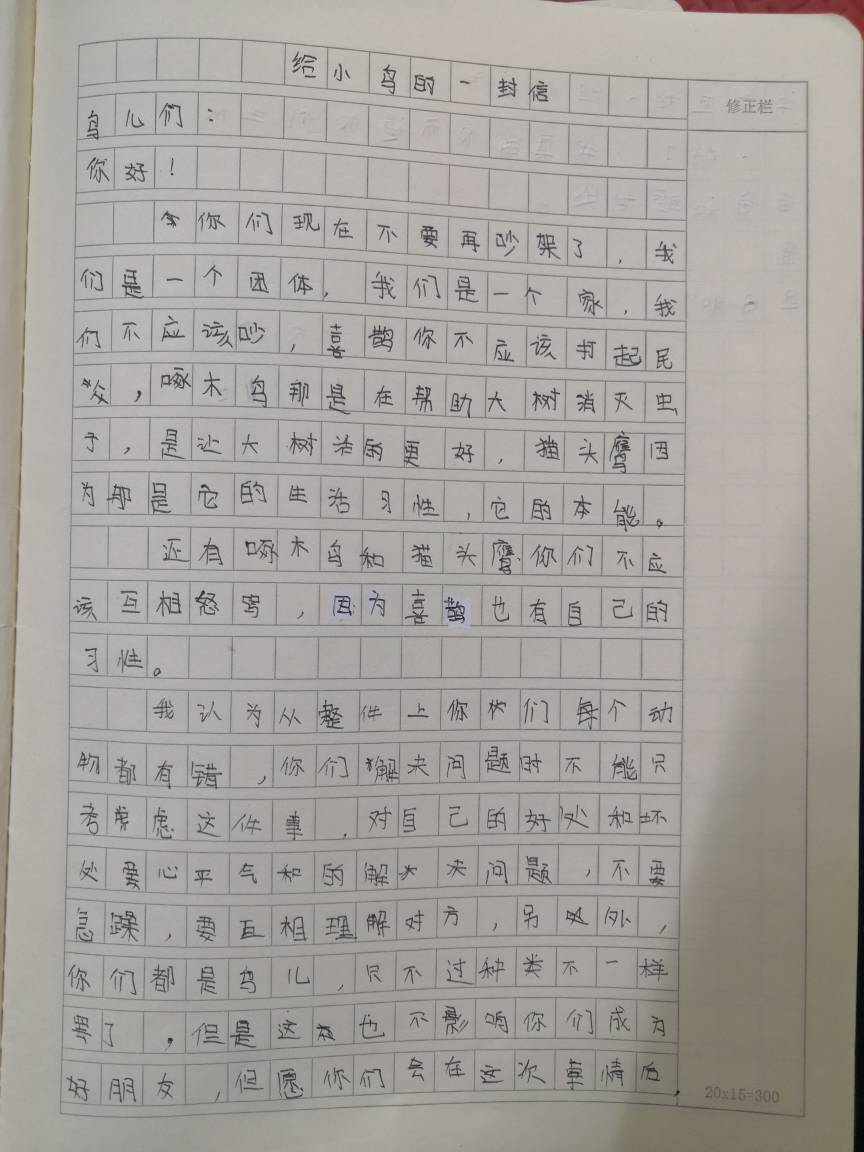 给小鸟的一封信
修正栏
鸟儿们：
你好！
你们现在不要再吵架了，我
们是一个团体，我们是一个家，我
们不应该吵，喜鹊你不应该打起民
众，啄木鸟那是在帮助大树消灭虫
子，是让大树活的更好，猫头鹰因
为那是它的生活习性，它的本能。
还有啄木鸟和猫头鹰你们不应
该互相怒骂，因为喜鹊也有自己的
习性。
我认为从整件上你们每个动
物都有错，你们解决问题时不能只
考虑这件事，对自己的好处和坏
处要心平气和的解决问题，不要
急躁，要互相理解对方，另外，
你们都是鸟儿，只不过种类不一样
罢了，但是这也不影响你们成为
好朋友，但愿你们会在这次事情后，
20x15=300